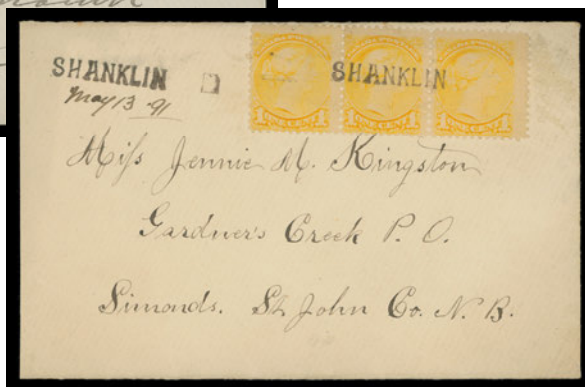 SHANKLIN SHANKLIN
May 13 91
1 ONE CENT 1 1 ONE CENT 1 1 ONE CENT 1
Miss Jennie M. Kingston
Gardner's Creek P. O.
Simonds. St John Co. N. B.